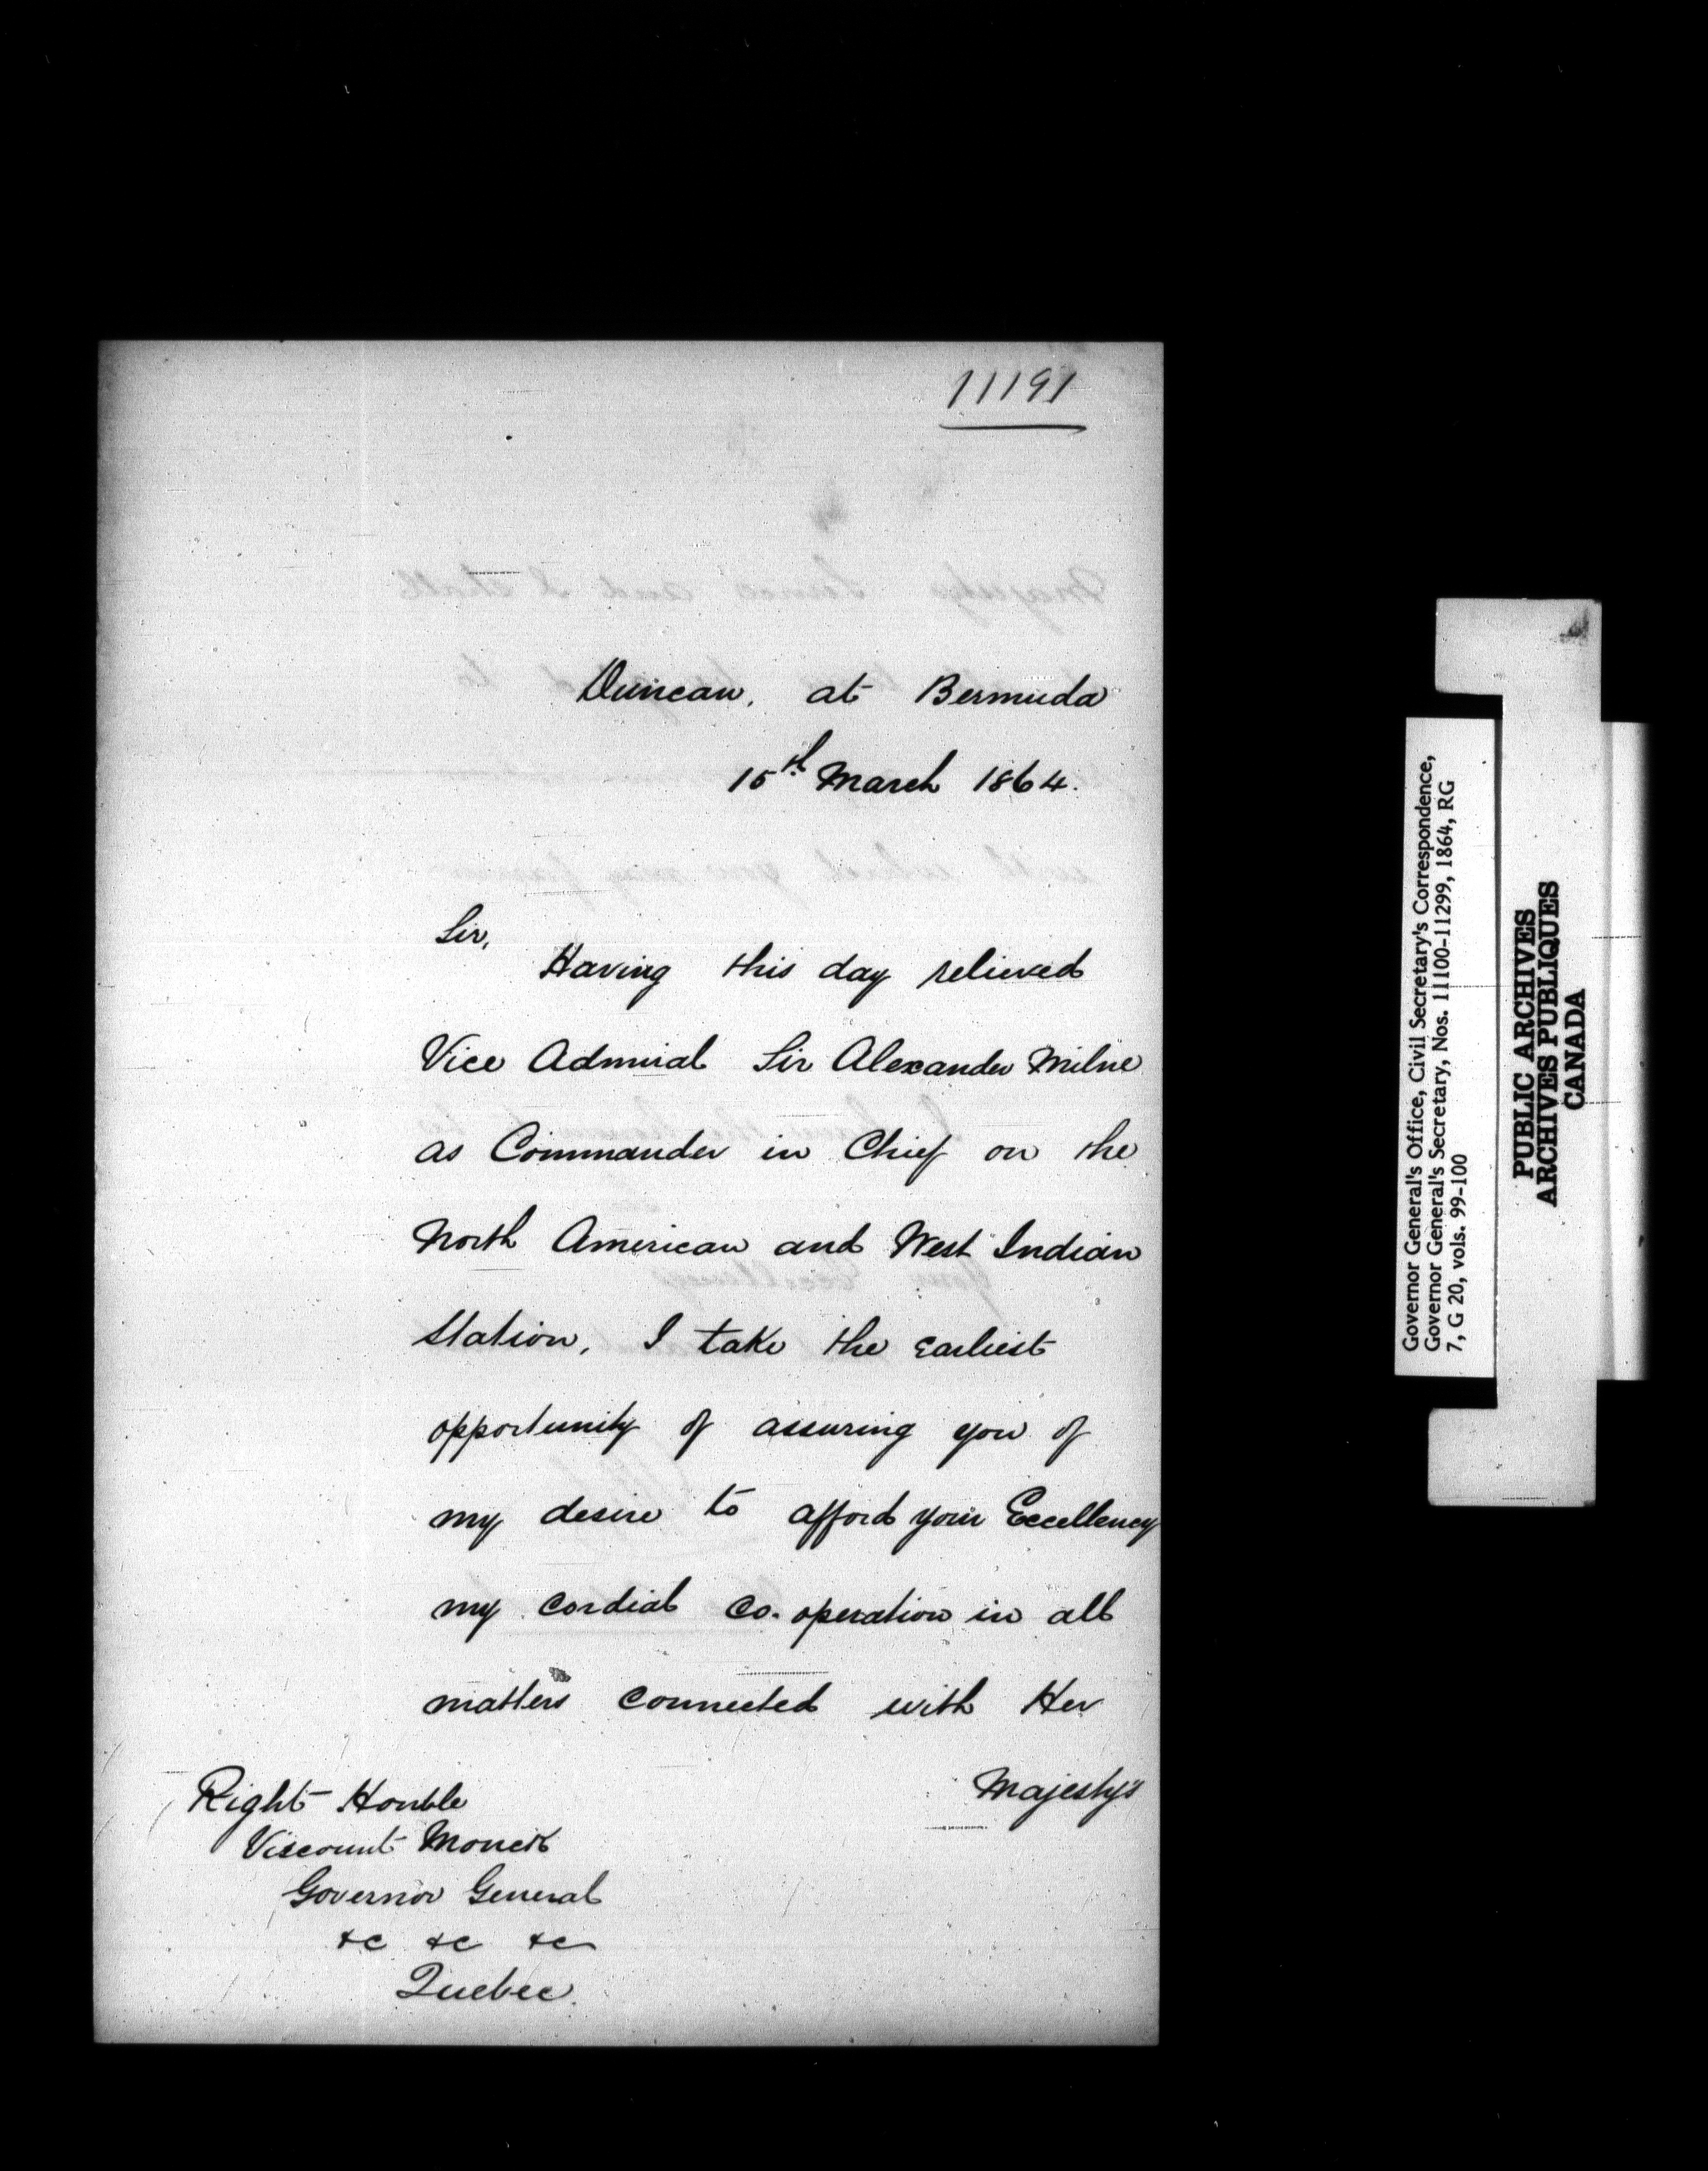 11191
Duncan, at Bermuda
15th March 1864.
Sir,
Having this day relieved
Vice Admiral Sir Alexander Milne
as Commander in Chief on the
North American and West Indian
Station, I take the earliest
opportunity of assuring you of
my desire to afford your Excellency
my cordial co-operation in all
matters connected with Her
Majesty's
Right Honble
Viscount Monck
Governor General
&c &c &c
Quebec.
Governor General's Office, Civil Secretary's Correspondence,
Governor General's Secretary, Nos. 11100-11299, 1864, RG
7, G 20, vols. 99-100
PUBLIC ARCHIVES
ARCHIVES PUBLIQUES
CANADA